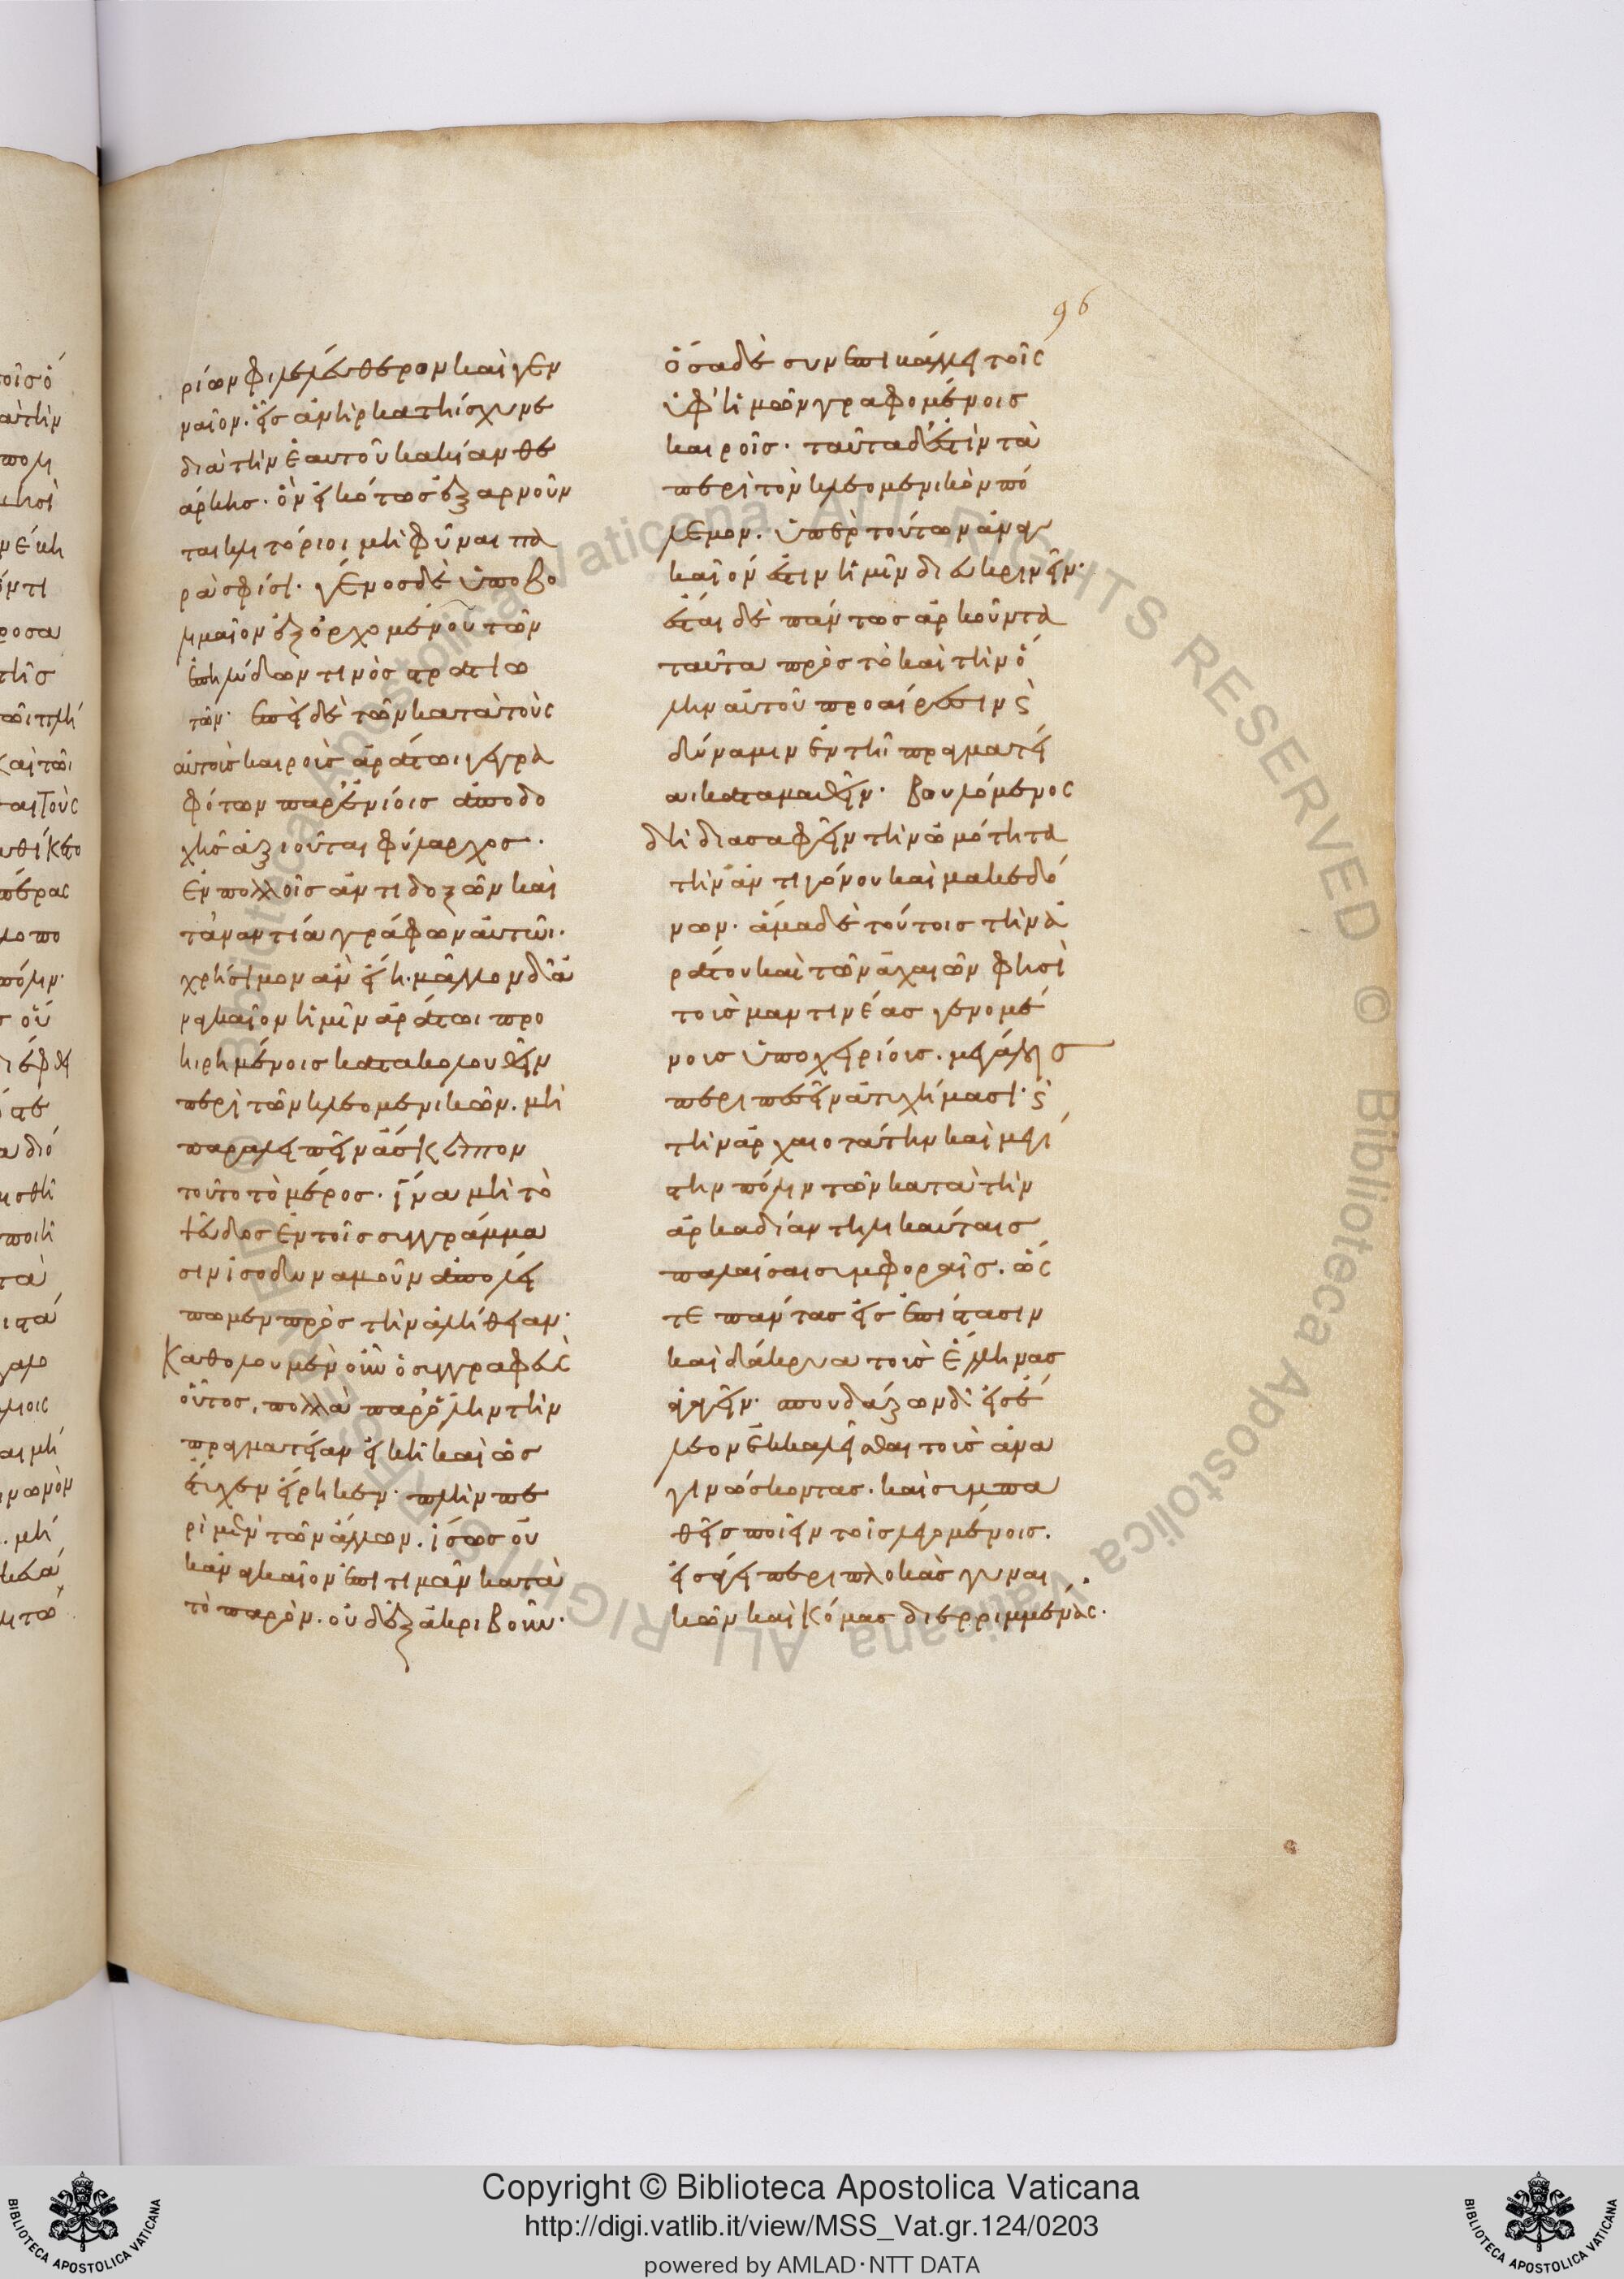 96
ρίων φιλελεύθερον καὶ γεν
ναῖον. εἰς ἀνὴρ κατήσχυνε
διὰ τὴν ἑαυτοῦ κακίαν θε
άρκης. ὃν εἰκότως ἐξαρνοῦν
ται κλιτόριοι μὴ φῦναι πα
ρὰ σφίσι. γένος δὲ ὑποβο
λιμαῖον ἐξ ὀρχομένου τῶν
ἐπηλύδων τινὸς στρατιω
τῶν. ἐπεὶ δὲ τῶν κατὰ τοὺς
αὐτοὺς καιροὺς ἀράτωι γεγρα
φότων παρ' ἐνίοις ἀποδο
χῆς ἀξιοῦται φύλαρχος.
ἐν πολλοῖς ἀντιδοξῶν καὶ
τἀναντία γράφων αὐτῶι.
χρήσιμον ἂν εἴη. μᾶλλον δ' ἀ
ναγκαῖον ἡμῖν ἀράτωι προ
ηιρημένοις κατακολουθεῖν
περὶ τῶν κλεομενικῶν. μὴ
παραλειπεῖν ἄσκεπτον
τοῦτο τὸ μέρος. ἵνα μὴ τὸ
ψεῦδος ἐν τοῖς συγγράμμα
σιν ἰσοδυναμοῦν ἀπολεί
πωμεν πρὸς τὴν ἀλήθειαν.
Καθόλου μὲν οὖν ὁ συγγραφεὺς
οὗτος, πολλὰ παρ' ὅλην τὴν
πραγματείαν εἰκῆ καὶ ὡς
ἔτυχεν εἴρηκεν. πλὴν πε
ρὶ μὲν τῶν ἄλλων. ἴσως οὐ
κ ἀναγκαῖον ἐπιτιμᾶν κατὰ
τὸ παρὸν. οὐδ' ἐξακριβοῦν.
ὅσα δὲ συνεπιβάλλει τοῖς
ὑφ' ἡμῶν γραφομένοις
καιροῖς. ταῦτα δ' ἐστὶν τὰ
περὶ τὸν κλεομενικὸν πό
λεμον. ὑπὲρ τούτων ἀναγ
καῖόν ἐστιν ἡμῖν διευκρινεῖν.
ἔσται δὲ πάντως ἀρκοῦντα
ταῦτα πρὸς τὸ καὶ τὴν ὅ
λην αὐτοῦ προαίρεσιν ϗ
δύναμιν ἐν τῆ πραγματεί
αι καταμαθεῖν. βουλόμενος
δὴ διασαφεῖν τὴν ὠμότητα
τὴν ἀντιγόνου καὶ μακεδό
νων. ἅμα δὲ τούτοις τὴν ἀ
ράτου καὶ τῶν ἀχαιῶν φησὶ
τοὺς μαντινέας γενομέ
νους ὑποχειρίους. μεγάλοις
περιπεσεῖν ἀτυχήμασι. ϗ
τὴν ἀρχαιοτάτην καὶ μεγί
στην πόλιν τῶν κατὰ τὴν
ἀρκαδίαν τηλικαύταις
παλαῖσαι συμφοραῖς. ὥς
τε πάντας εἰς ἐπίστασιν
καὶ δάκρυα τοὺς ἕλληνας
ἀγαγεῖν. σπουδάζων δ' εἰς ἔ
λεον ἐκκαλεῖσθαι τοὺς ἀνα
γινώσκοντας. καὶ συμπα
θεῖς ποιεῖν τοῖς λεγομένοις.
εἰσάγει περιπλοκὰς γυναι
κῶν καὶ κόμας διερριμμένας.
Copyright © Biblioteca Apostolica Vaticana
http://digi.vatlib.it/view/MSS_Vat.gr.124/0203
powered by AMLAD · NTT DATA
BIBLIOTECA APOSTOLICA VATICANA
BIBLIOTECA APOSTOLICA VATICANA
© Biblioteca Apostolica Vaticana ALL RIGHTS RESERVED © Biblioteca Apostolica Vaticana ALL RIGHTS RESERVED